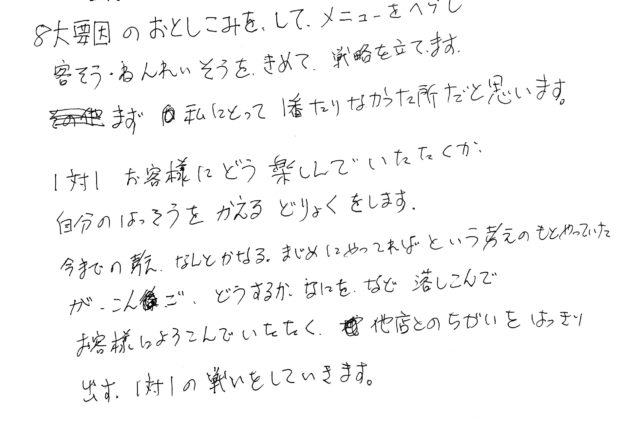 8大要因のおとしこみを、して、メニューをへらし
客そう・ねんれいそうを、きめて、戦略を立てます。
まず 私にとって1番たりなかった所だと思います。
1対1 お客様にどう楽しんでいたたくか、
自分のはっそうをかえるどりょくをします。
今までの考え、なんとかなる。まじめにやってればという考えのもとやっていた
が、こんご、どうするか、なにを、など落しこんで
お客様によろこんでいたたく、他店とのちがいをはっきり
出す、1対1の戦いをしていきます。